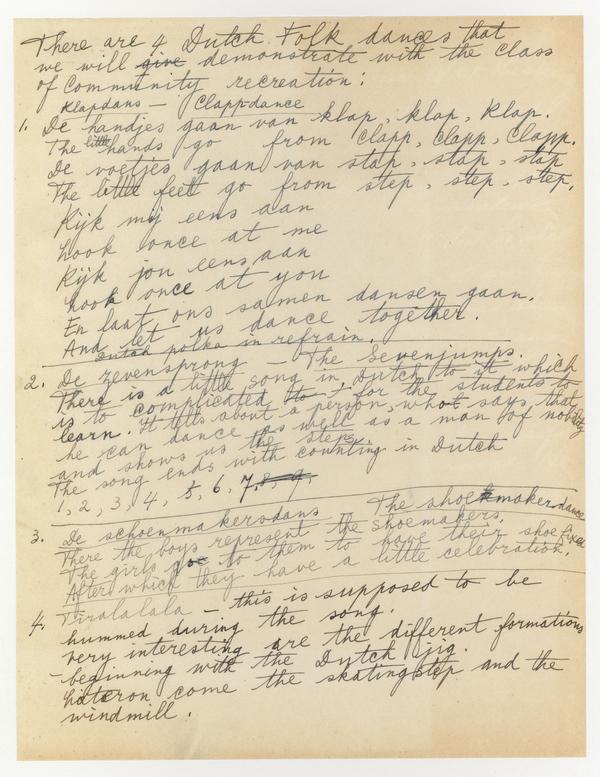 There are 4 Dutch Folk dances that
we will give demonstrate with the class
of Community recreation:
Klapdans — Clapp-dance
1. De handjes gaan van klap, klap, klap.
The little hands go from clapp, clapp, clapp.
De voetjes gaan van stap, stap, stap
The little feet go from step, step, step.
Kijk mij eens aan
Look once at me
Kijk jou eens aan
Look once at you
En laat ons samen dansen gaan.
And let us dance together.
Dutch polka in refrain.
2. De zevensprong — The sevenjumps.
There is a little song in Dutch to it which
is to complicated for the students to
learn. It tells about a person, who says, that
he can dance as well as a man of nobility
and shows us the steps.
The song ends with counting in Dutch
1, 2, 3, 4, 5, 6, 7, 8, 9,
3. De schoenmakersdans The shoemakerdance
There the boys represent the shoemakers.
The girls go to them to have their shoe fixed
After which they have a little celebration.
4. Tiralalala — this is supposed to be
hummed during the song.
Very interesting are the different formations
- beginning with the Dutch jig.
Lateron come the skatingstep and the
windmill.